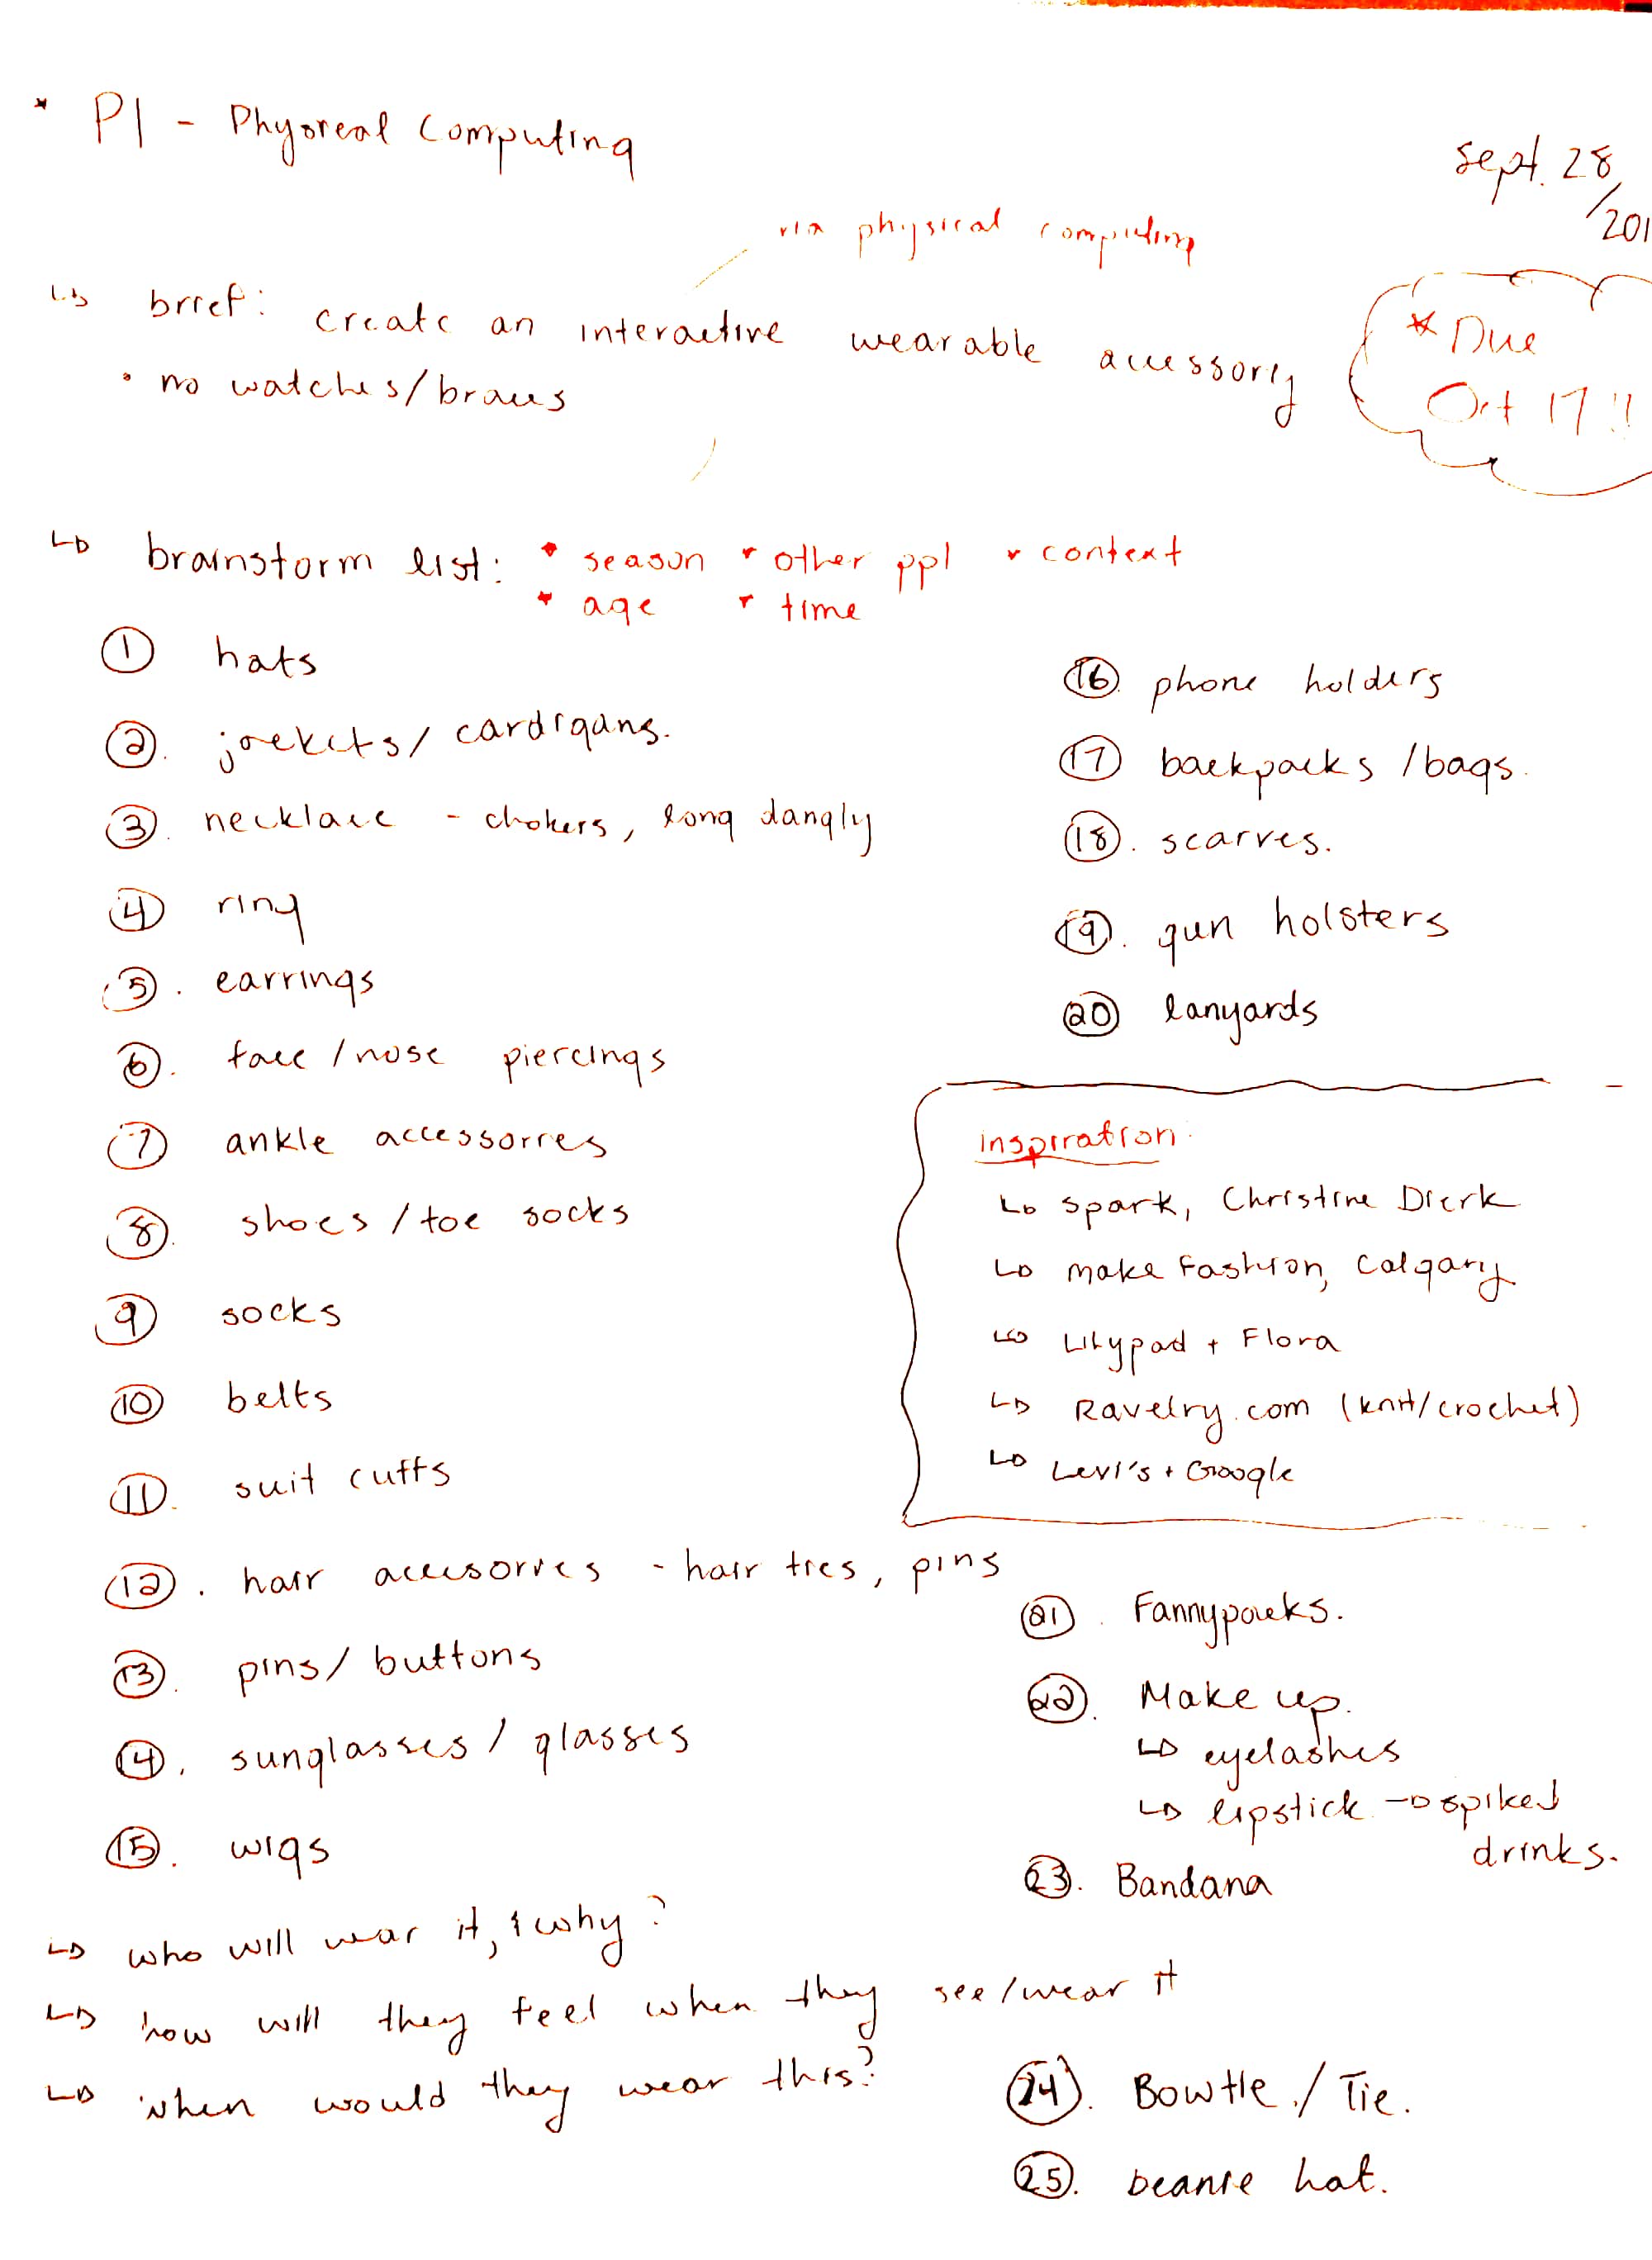 * P1 - Physical Computing
Sept. 28
/201
via physical computing
↳ brief: create an interactive wearable accessory
• no watches/braces
* Due
Oct 17!!
↳ brainstorm list: * season * other ppl * context
* age * time
① hats
②. jackets/cardigans.
③. necklace - chokers, long dangly
④ ring
⑤. earrings
⑥. face/nose piercings
⑦ ankle accessories
⑧. shoes/toe socks
⑨ socks
⑩ belts
⑪. suit cuffs
⑫. hair accesories - hair ties, pins
⑬. pins/buttons
⑭. sunglasses/glasses
⑮. wigs
⑯ phone holders
⑰ backpacks/bags.
⑱. scarves.
⑲. gun holsters
⑳ lanyards
inspiration.
↳ Spark, Christine Dierk
↳ Make Fashion, Calgary
↳ Lilypad + Flora
↳ Ravelry.com (knit/crochet)
↳ Levi's + Google
㉑. Fannypacks.
㉒. Make up.
↳ eyelashes
↳ lipstick → spiked
drinks.
㉓. Bandana
↳ who will wear it, & why?
↳ how will they feel when they see/wear it
↳ when would they wear this?
㉔. Bowtie./Tie.
㉕. beanie hat.